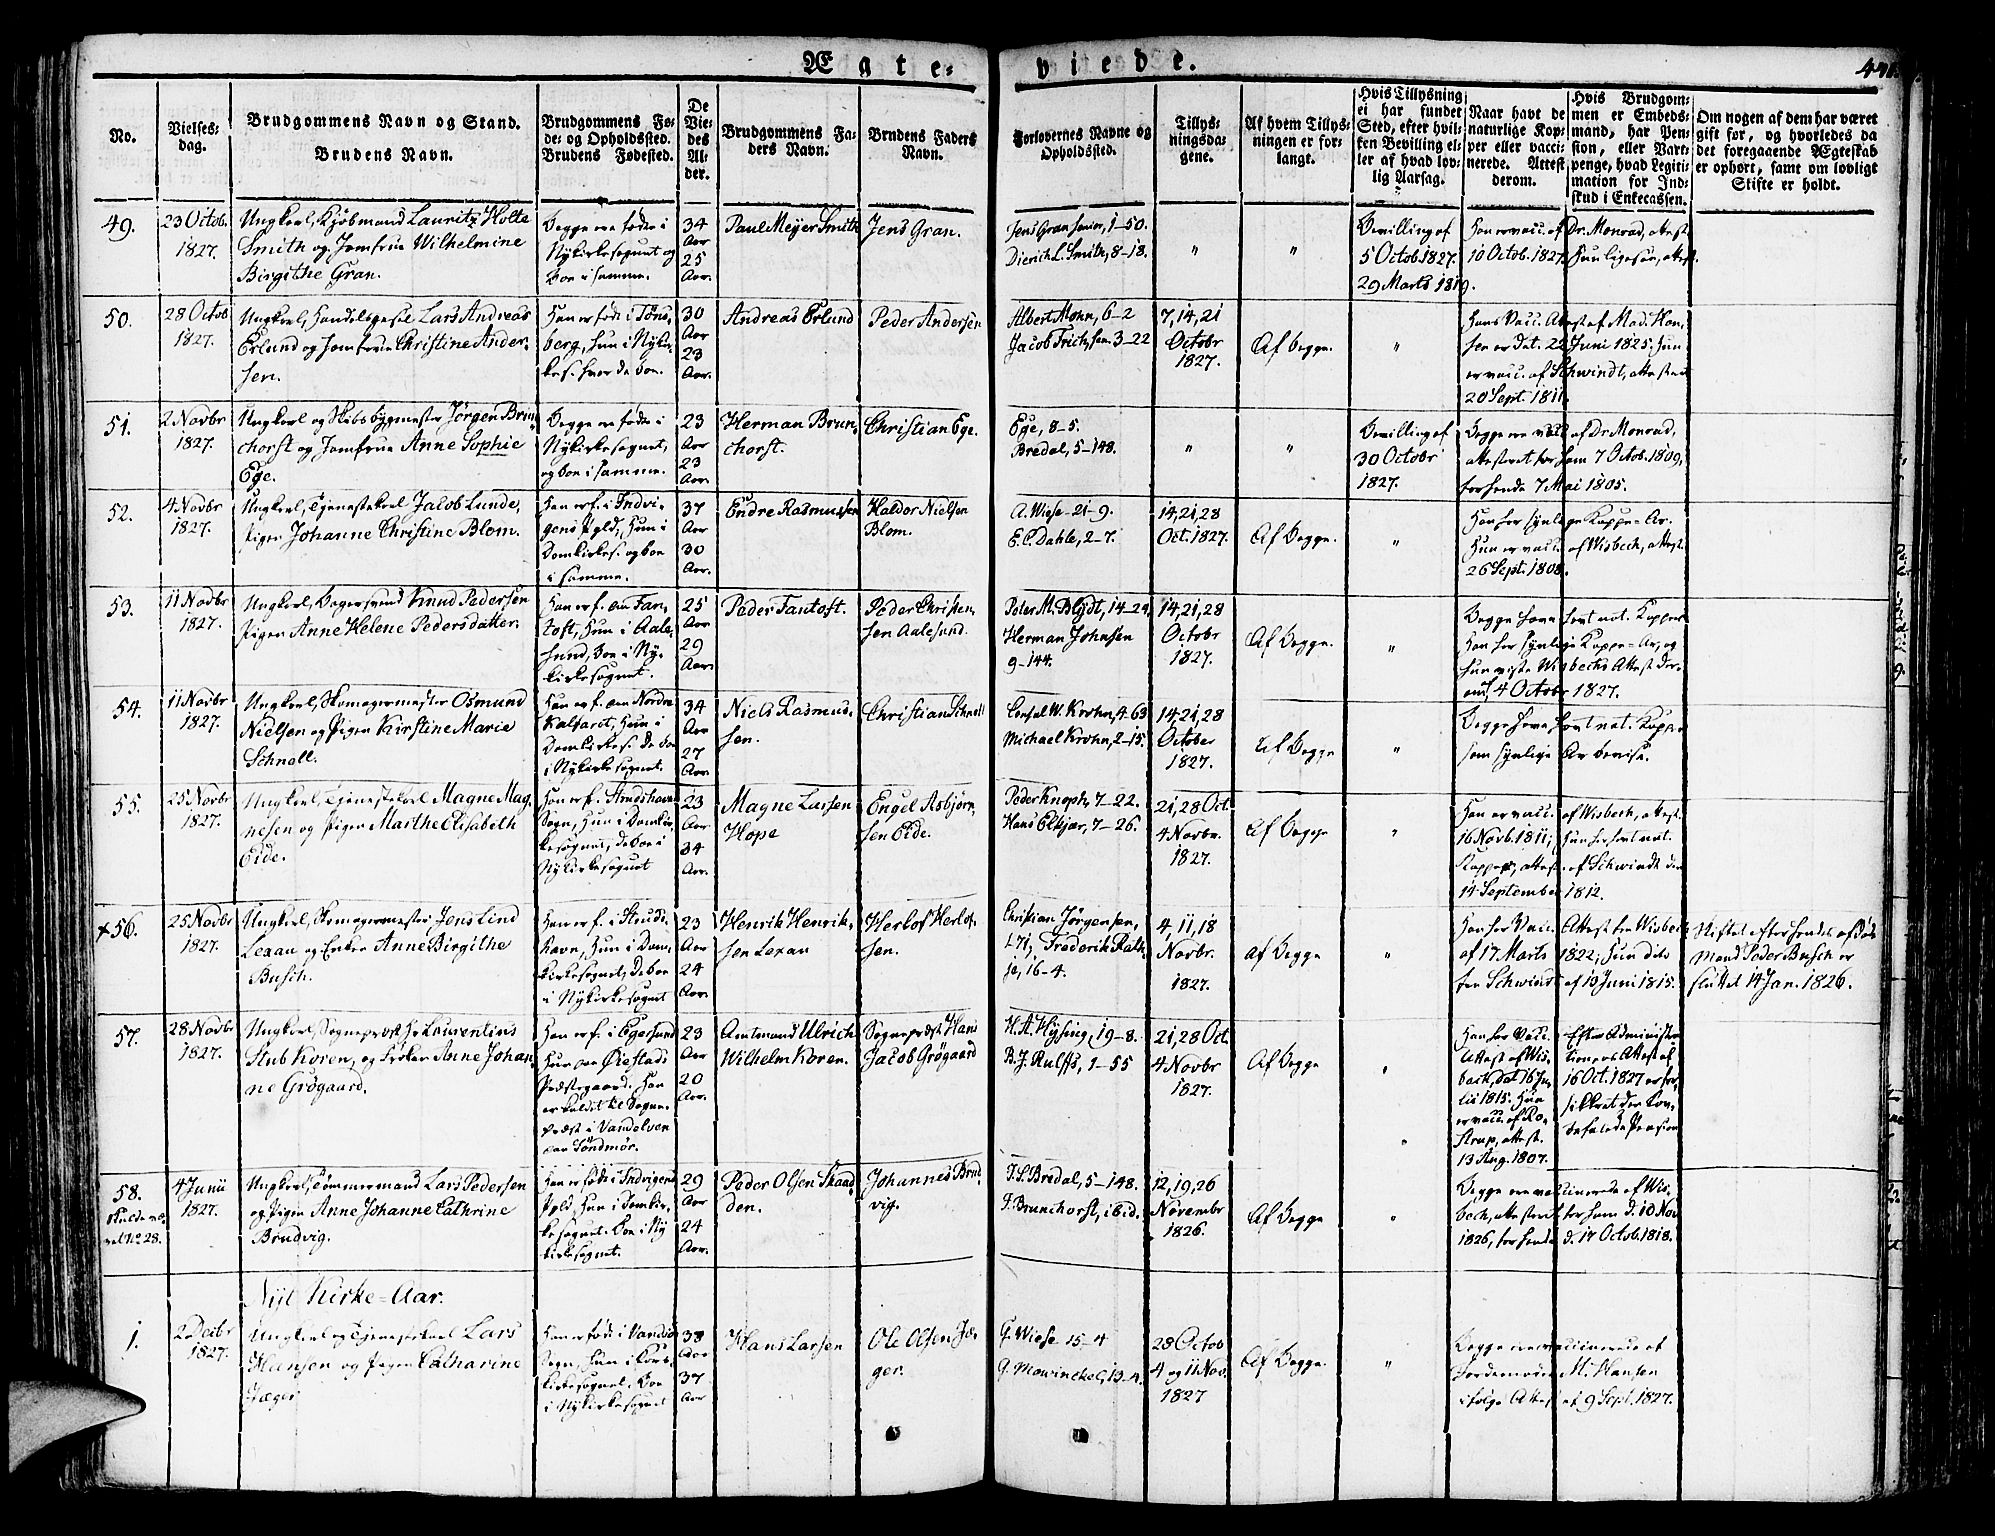 Ægte-
viede.
No.
Vielses-
dag.
Brudgommens Navn og Stand.
Brudens Navn.
Brudgommens Fø-
de- og Opholdssted.
Brudens Fødested.
De
Vie-
des
Al-
der.
Brudgommens Fa-
ders Navn.
Brudens Faders
Navn.
Forlovernes Navne og
Opholdssted.
Tillys-
ningsda-
gene.
Af hvem Tillys-
ningen er for-
langt.
Hvis Tillysning
ei har fundet
Sted, efter hvil-
ken Bevilling el-
ler af hvad lov-
lig Aarsag.
Naar havt de
naturlige Kop-
per eller vacci-
nerede. Attest
derom.
Hvis Brudgom-
men er Embeds-
mand, har Pen-
sion, eller Vart-
penge, hvad Legiti-
mation for Ind-
skud i Enkecassen.
Om nogen af dem har været
gift før, og hvorledes da
det foregaaende Ægteskab
er ophørt, samt om lovligt
Skifte er holdt.
49.
23 Octob.
1827.
Ungkarl, Kjøbmand Lauritz Holte
Smith og Jomfrue Wilhelmine
Birgithe Gran.
Begge ere fødte i
Nykirkesognet og
boe i samme.
34
Aar
25
Aar.
Paul Meyer Smith
Jens Gran.
Jens Gran senior, 1-50.
Dierich L. Smith, 8-18.
"
"
Bevilling af
5 Octob 1827.
29 Marts 1819.
Han er vacc. af Dr. Monrad, attest
10 Octob. 1827. Hun ligesaa, attest.
50.
28 Octob
1827.
Ungkarl, Handelsgesel Lars Andreas
Erlund og Jomfrue Christine Ander-
sen.
Han er født i Tøns-
berg, hun i Nykir-
kes. hvor de boe.
30
Aar
23
Aar.
Andreas Erlund
Peder Andersen
Albert Mohn, 6-2
Jacob Frich, sen. 3-22
7, 14, 21
Octobr
1827.
Af begge.
"
Hans Vacc. Attest af Mad. Han-
sen er dat. 22 Juni 1825. Hun
er vacc. af Schwindt, attesteret
20 Sept. 1811.
51.
2 Novbr
1827.
Ungkarl og Skibsbygmester Jørgen Brun-
chorst og Jomfrue Anne Sophie
Ege.
Begge ere fødte i
Nykirkesognet,
og boe i samme.
23
Aar
23
Aar.
Herman Brun-
chorst.
Christian Ege.
Ege, 8-5.
Bredal, 5-148.
"
"
Bevilling af
30 Octobr
1827.
Begge ere vacc. af Dr Monrad,
attesteret for ham 7 Octob. 1809,
for hende 7 Mai 1805.
52.
4 Novbr
1827.
Ungkarl, Tjenestekarl Jacob Lunde,
Pigen Johanne Christine Blom.
Han er f. i Indvi-
gens Pgld, hun i
Domkirkes. og boe
i samme.
37
Aar
30
Aar.
Endre Rasmussen
Haldor Nielsen
Blom.
A. Wiese 21-9.
E. C. Dahle, 2-7.
14, 21, 28
Oct. 1827.
Af Begge.
"
Han har synlige Koppe-Ar.
Hun er vacc. af Wisbech, attest.
26 Sept. 1808.
53.
11 Novbr
1827.
Ungkarl, Bagersvend Knud Pedersen
Pigen Anne Helene Pedersdatter.
Han er f. paa Fan-
toft, hun i Aale-
sund, boe i Ny-
kirkesognet.
25
Aar
29
Aar.
Peder Fantoft.
Peder Christen-
sen Aalesund.
Peter M. Blydt, 14-24,
Herman Johnsen
9-144.
14, 21, 28
Octobr
1827.
Af Begge.
"
Begge have havt nat. Kopper
Han har synlige Koppe-Ar, og
hun viste Wisbechs Attest der-
om, 4 Octobr 1827.
54.
11 Novbr
1827.
Ungkarl, Skomagermester Osmund
Nielsen og Pigen Kirstine Marie
Schnell.
Han er f. paa Nordre
Kalfaret, hun i
Domkirkes. De boe
i Nykirkesognet.
34
Aar
27
Aar.
Niels Rasmus-
sen.
Christian Schnell
Consul W. Krohn, 4-63
Michael Krohn, 2-15.
14, 21, 28
October
1827.
Af Begge
"
Begge have havt nat. Kopper
som synlige Ar bevise.
55.
25 Novbr
1827.
Ungkarl, Tjenestekarl Magne Mag-
nesen og Pigen Marthe Elisabeth
Eide.
Han er f. Strudshavn
Sogn, hun i Domkir-
kesognet, de boe i
Nykirkesognet
23
Aar
34
Aar.
Magne Larsen
Hope
Engel Asbjørn-
sen Eide.
Peder Knoph, 7-22.
Hans Elkjær, 7-26.
21, 28 Oct.
4 Novbr.
1827.
Af Begge
"
Han er vacc. af Wisbech, attest.
16 Novb. 1811; hun har havt nat.
Kopper, attest. af Schwindt den
14 September 1812.
+56.
25 Novbr
1827.
Ungkarl, Skomagermester Jens Lind
Lexau og Enken Anne Birgithe
Busch.
Han er f. i Struds-
havn, hun i Dom-
kirkesognet, de boe
i Nykirkesognet
23
Aar
24
Aar.
Henrik Henrik-
sen Lexau
Herlof Herlof-
sen.
Christian Jørgensen,
171, Frederik Kalt-
se, 16-4.
4, 11, 18
Novbr.
1827.
Af Begge
"
Han har Vacc. Attest fra Wisbech
af 17 Marts 1822; hun dito
fra Schwindt af 19 Juni 1815.
Skiftet efter hendes afdøde
Mand Peder Busch er
sluttet 14 Jan. 1826.
57.
28 Novbr
1827.
Ungkarl, Sognepræst Hr Laurentius
Stub Koren, og Frøken Anne Johan-
ne Grøgaard.
Han er f. i Egersund
Hun paa Øiestads
Præstegaard. Han
er kaldet til Sogne-
præst i Vandelven
paa Söndmör.
23
Aar
20
Aar.
Amtmand Ulrich
Wilhelm Koren.
Sognepræst Hans
Jacob Grøgaard
H. A. Hysing, 19-8.
B. J. Rulffs, 1-55
21, 28 Oct.
4 Novbr
1827.
Af Begge
"
"
Han har Vacc.
Attest af Wis-
bech, dat 16 Ju-
lii 1815. Hun
er vacc. af Ro-
strup, attest.
13 Aug. 1807.
Efter Administra-
tionens Attest af
16 Oct. 1827 er for-
sikkret den
befalede Pension
58.
skulde væ-
ret No 28.
4 Junii
1827.
Ungkarl, Tømmermand Lars Pedersen
og Pigen Anne Johanne Cathrine
Brudvig.
Han er født i Indvigens
Pgld, hun i Domkir-
kesognet. Boe i Ny-
kirkesognet.
29
Aar
24
Aar.
Peder Olsen Skaad-
den.
Johannes Brud-
vig.
J. S. Bredal, 5-148.
J. Brunchorst, ibid.
12, 19, 26
Novembr
1826.
Af Begge
"
Begge ere vaccinerede af Wis-
bech, attesteret for ham d. 10 Nov
1826, for hende d. 17 Octob. 1818.
Nyt Kirke-Aar.
1.
2 Decbr
1827.
Ungkarl og Tjenestekarl Lars
Hansen og Pigen Catharine
Jæger
Han er født i Vandsø
Sogn, hun i Kors-
kirkesognet. Boe
i Nykirkesognet
38
Aar
37
Aar
Hans Larsen
Ole Olsen Jæ-
ger.
G. Wiese 15-4
G. Mowinckel, 19-4.
28 Octob
4 og 11 Nov.
1827
Af Begge.
"
Begge ere vaccinerede af
Jordemoder M. Hansen
ifølge Attest af 9 Sept. 1827.